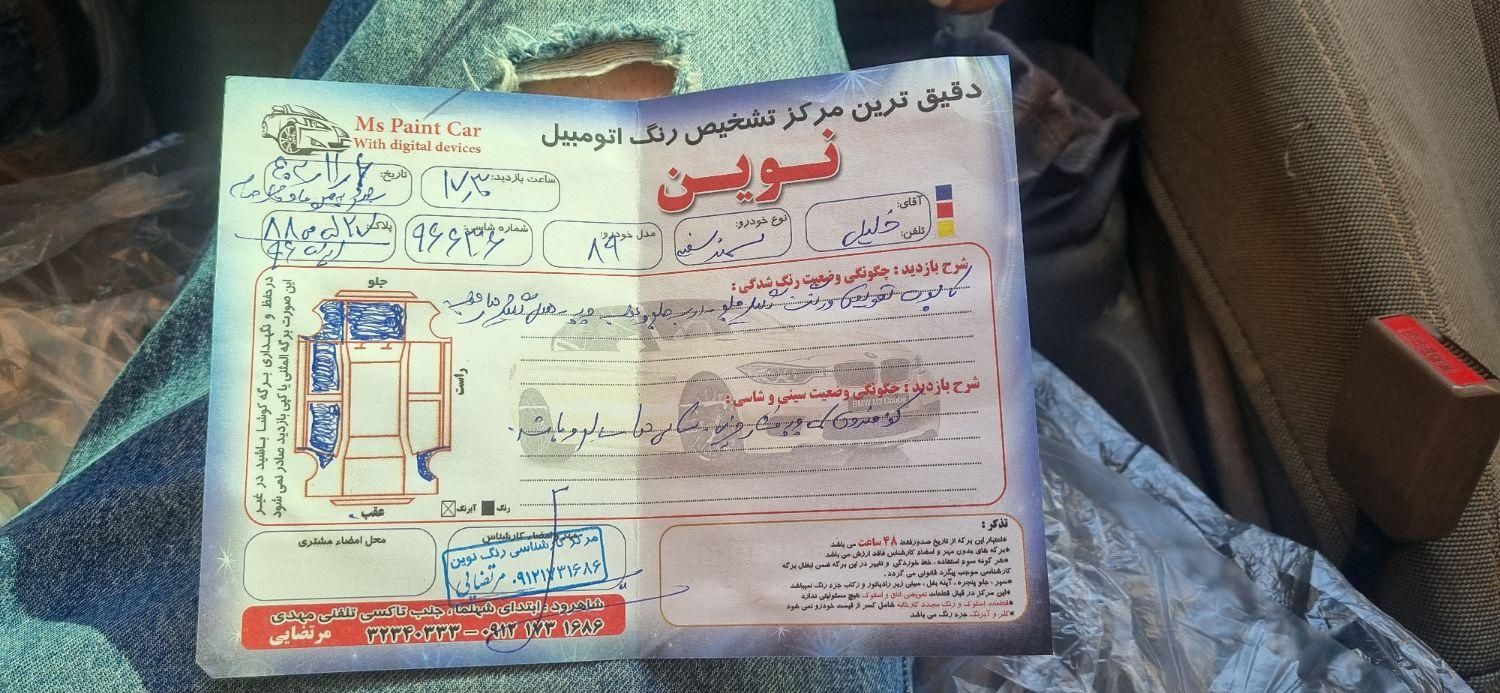 دقیق ترین مرکز تشخیص رنگ اتومبیل
نوین
Ms Paint Car
With digital devices
آقای: خلیلی
تلفن:
نوع خودرو: سمند سفید
مدل خودرو: ۸۹
شماره شاسی: ۹۶۶۳۶
پلاک: ۸۸
ساعت بازدید: ۱۷/۳۰
تاریخ:
شرح بازدید : چگونگی وضعیت رنگ شدگی :
کاپوت تعویض و رنگ
شرح بازدید : چگونگی وضعیت سینی و شاسی :
جلو
راست
عقب
رنگ
آبرنگ
در حفظ و نگهداری برگه کوشا باشید در غیر
این صورت برگه المثنی یا کپی بازدید صادر نمی شود
محل امضاء مشتری
مهر و امضاء کارشناس
مرکز کارشناسی رنگ نوین
۰۹۱۲۱۷۳۱۶۸۶ مرتضائی
تذکر :
*اعتبار این برگه از تاریخ صدور فقط ۴۸ ساعت می باشد
*برگه های بدون مهر و امضاء کارشناس فاقد ارزش می باشد
*هر گونه سوء استفاده ، خط خوردگی و تغییر در این برگه ضمن ابطال برگه
کارشناسی موجب پیگرد قانونی می گردد .
*سپر ، جلو پنجره ، آینه بغل ، سینی زیر رادیاتور و رکاب جزء رنگ نمیباشد
*این مرکز در قبال قطعات تعویضی اتاق و استوک هیچ مسئولیتی ندارد
*قطعات استوک و رنگ مجدد کارخانه شامل کسر از قیمت خودرو نمی شود
*کلر و آبرنگ جزء رنگ می باشد
شاهرود ، ابتدای شهلما، جنب تاکسی تلفنی مهدی
۳۲۳۴۰۳۳۳ – ۰۹۱۲ ۱۷۳ ۱۶۸۶ مرتضایی
BMW M3 Coupe
PRESS